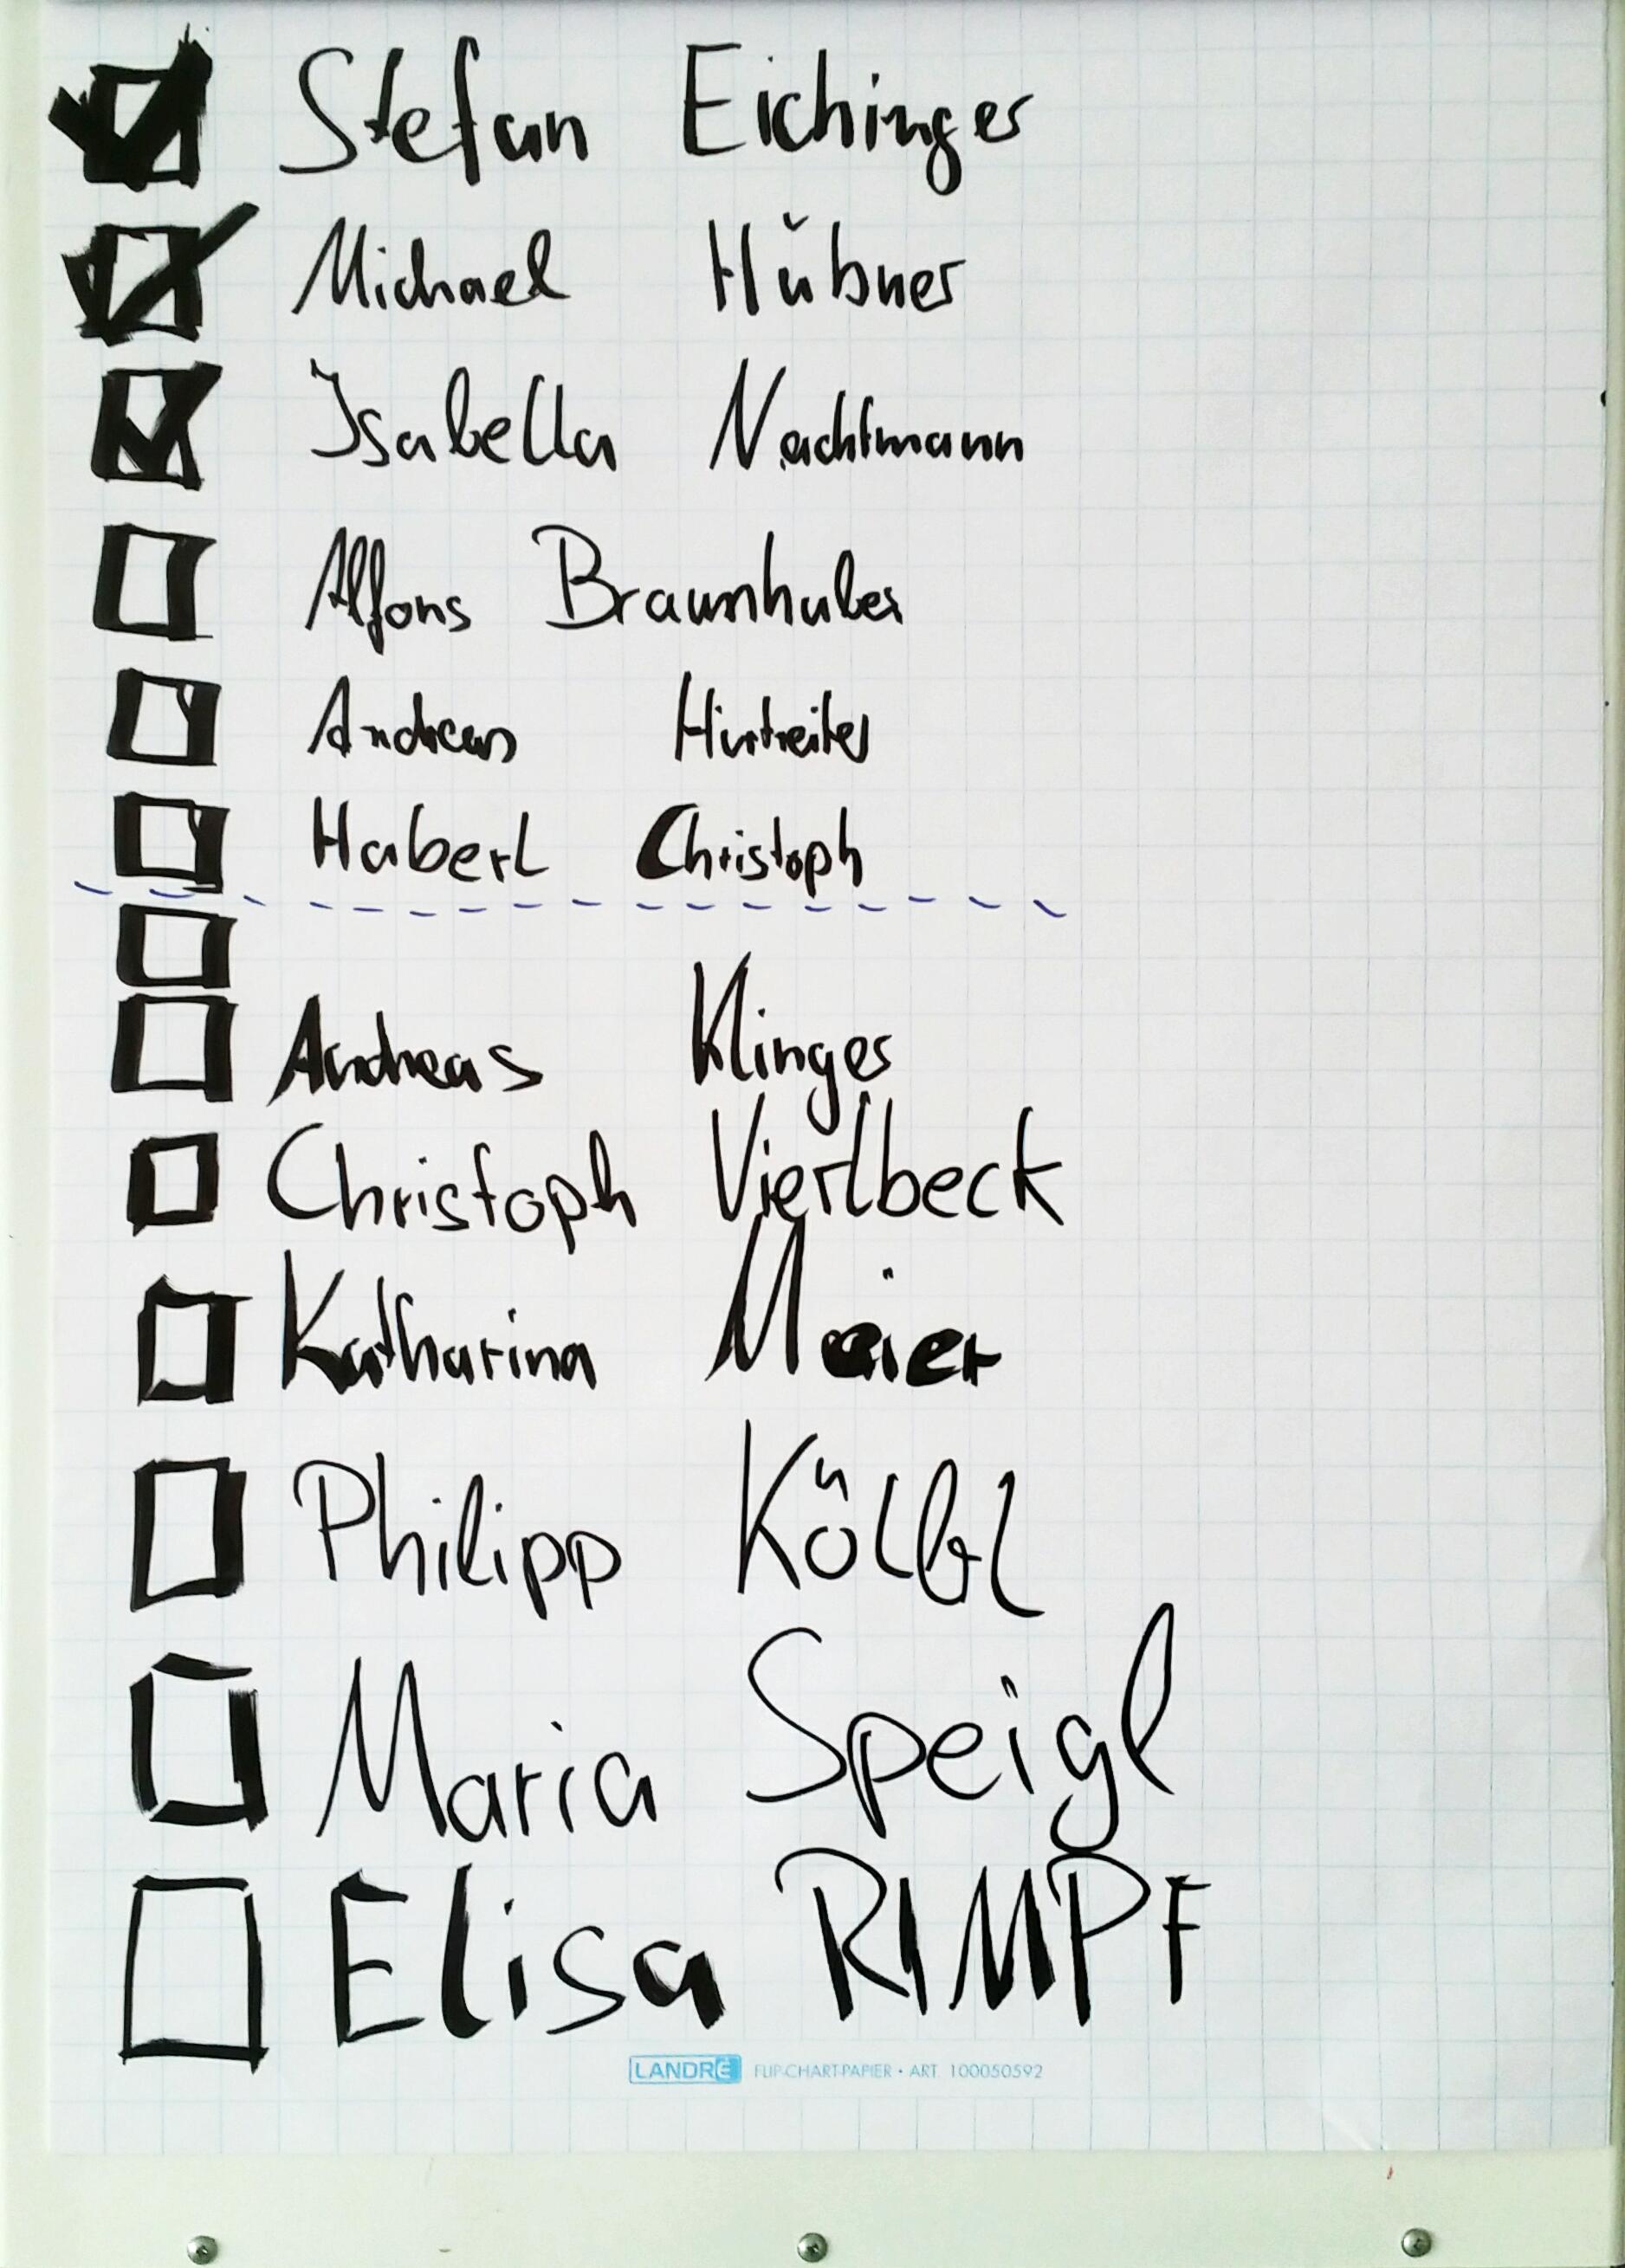 Stefan Eichinger
Michael Hübner
Isabella Nachtmann
Alfons Braunhuber
Andreas Hirtreiter
Haberl Christoph
Andreas Klinger
Christoph Vierlbeck
Katharina Meier
Philipp Kölbl
Maria Speigl
Elisa RIMPF
LANDRÉ FLIP-CHART-PAPIER • ART. 100050592